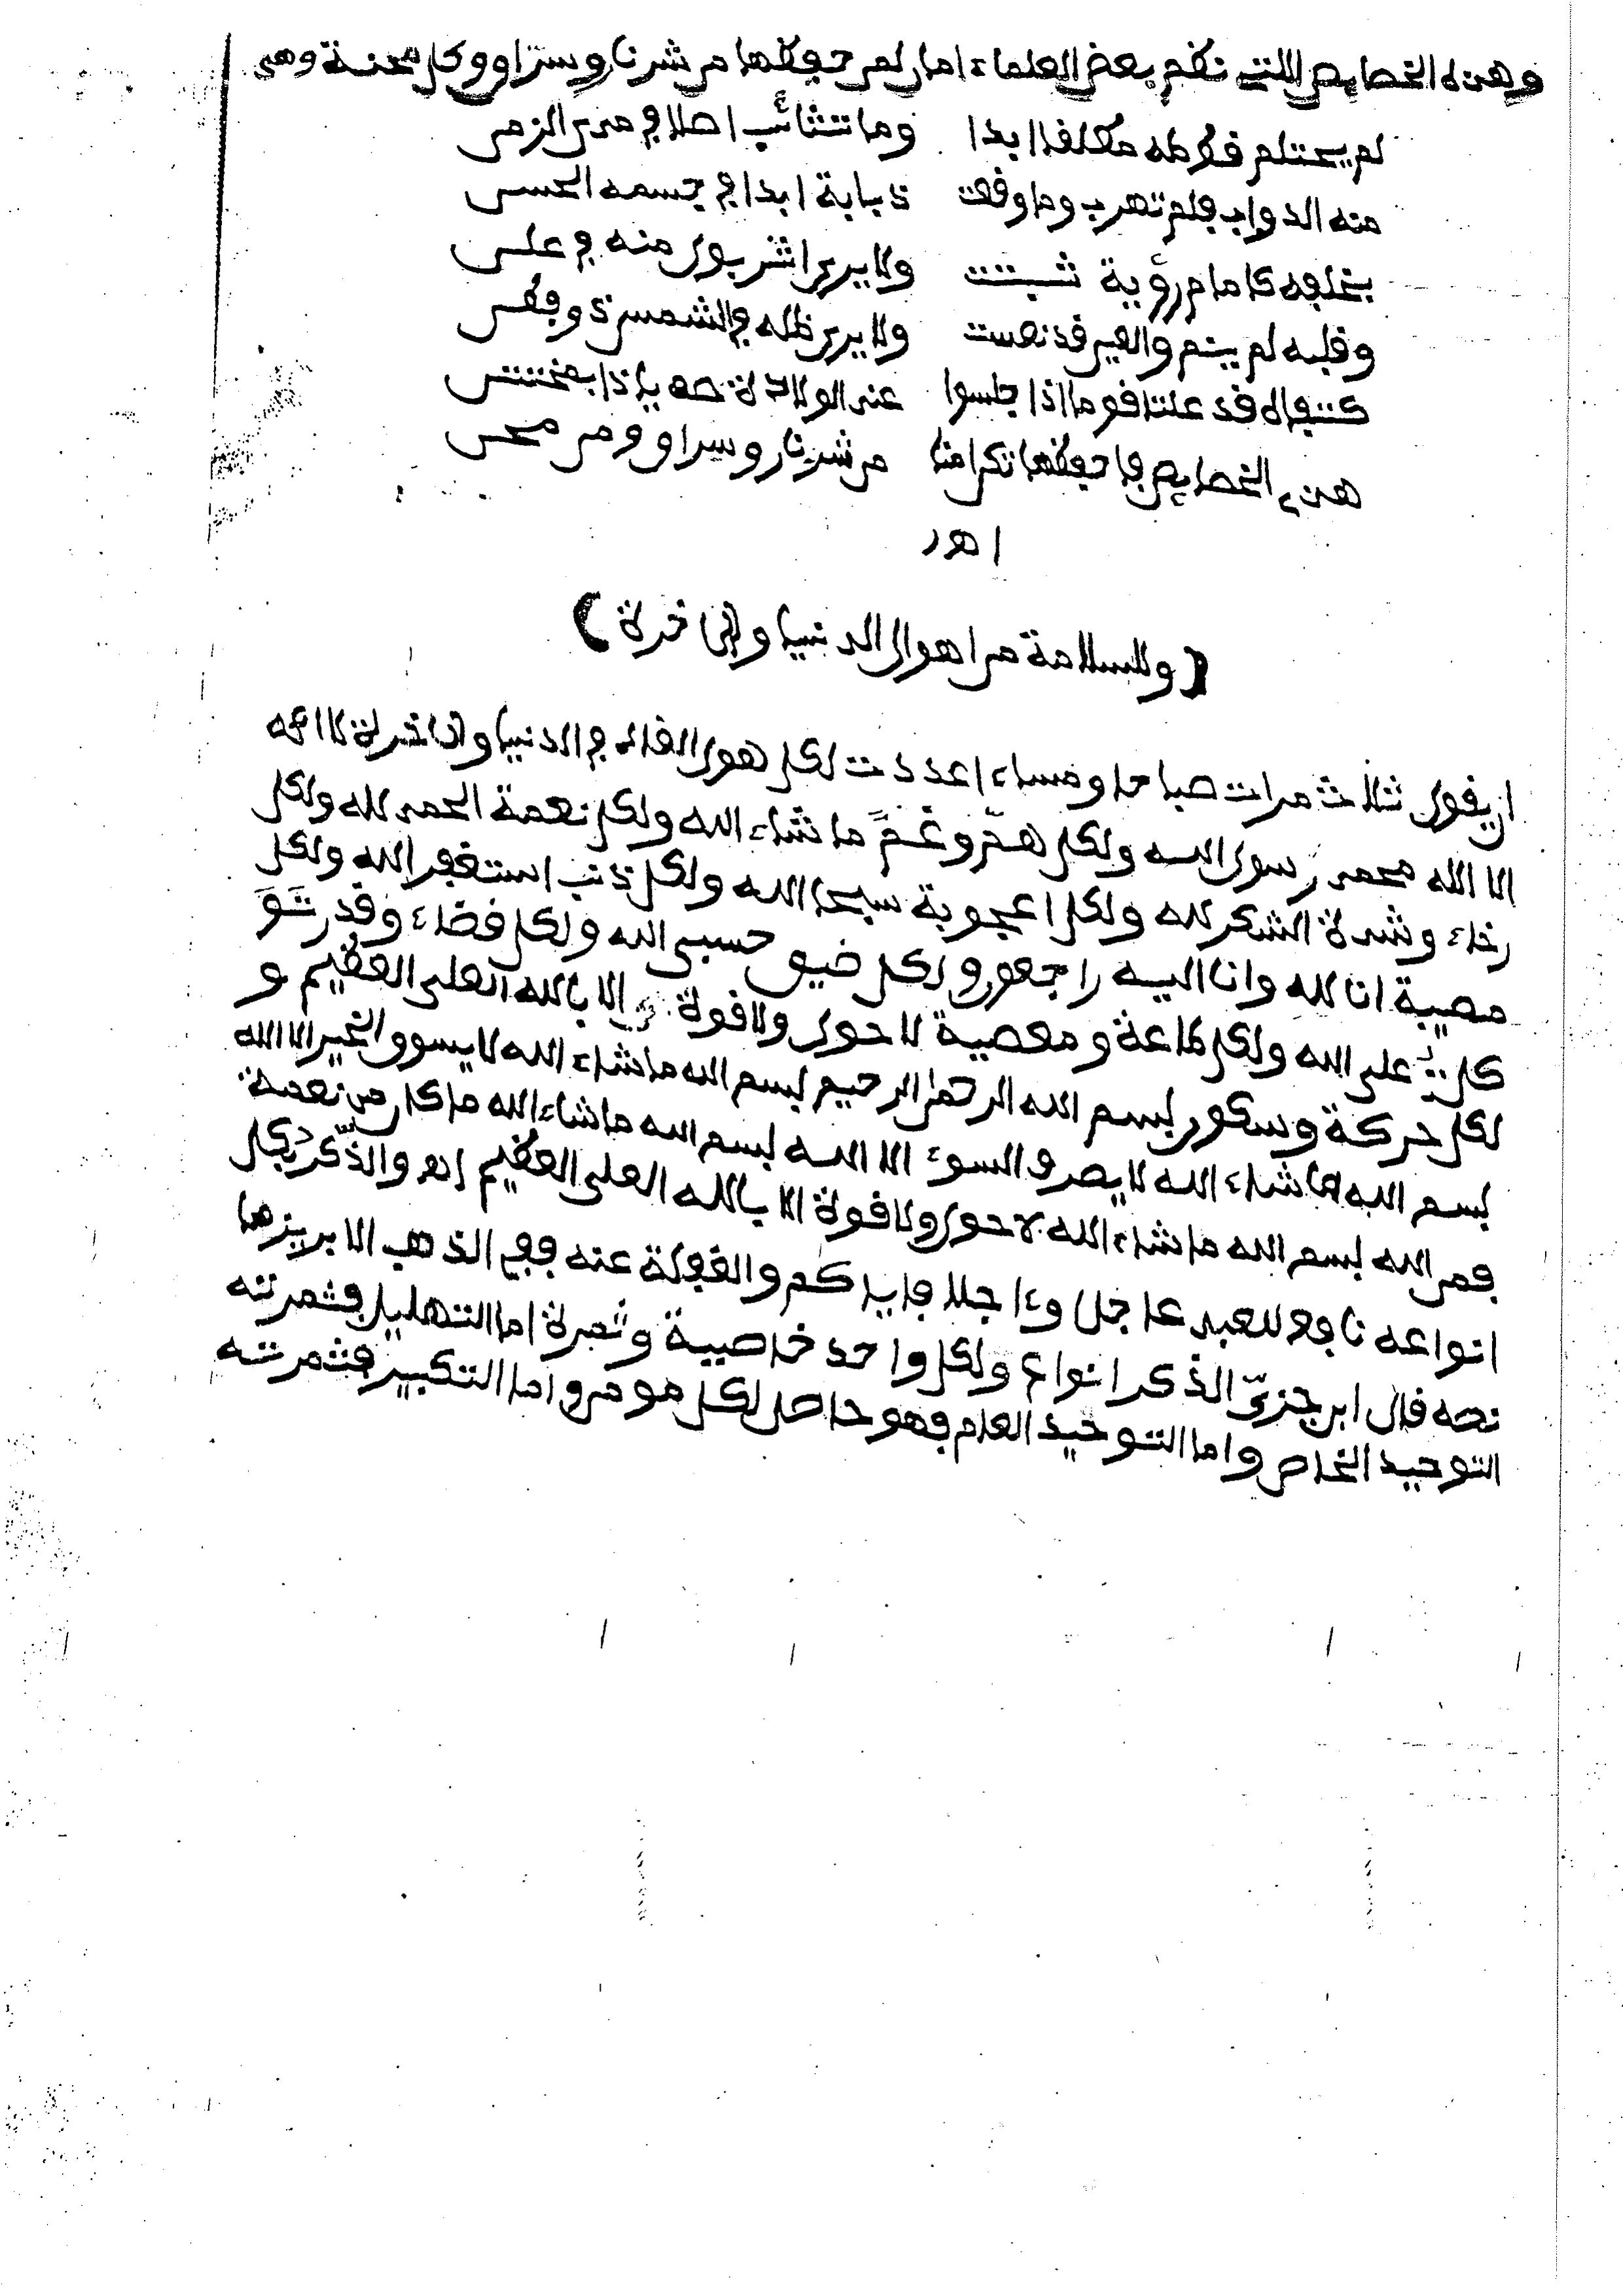 وهذه الخصايص اللتى نظم بعض العلماء امان لمن حفظها من شر نار وسراق وكل محنة وهى
لم يحتلم قط طه مطلقا ابدا وما تثائب اصلا في مدى الزمن
منه الدواب فلم تهرب وما وقعت ذبابة ابدا في جسمه الحسن
بخلفه كامام رؤية ثبتت ولا يرى اثر بول منه في علن
وقلبه لم ينم والعين قد نعست ولا يرى ظله في الشمس ذو فطن
كتفاه قد علتا قوما اذا جلسوا عند الولادة صه يا ذا بمختتن
هذه الخصايص فاحفظها تكن امنا من شر نار وسراق ومن محن
اهـ
(وللسلامة من اهوال الدنيا والاخرة)
ان يقول ثلاث مرات صباحا ومساء اعددت لكل هول القاه في الدنيا والاخرة لا اله
الا الله محمد رسول الله ولكل همّ وغمّ ما شاء الله ولكل نعمة الحمد لله ولكل
رخاء وشدة الشكر لله ولكل اعجوبة سبحان الله ولكل ذنب استغفر الله ولكل
مصيبة انا لله وانا اليه راجعون ولكل ضيق حسبى الله ولكل قضاء وقدر تَوَ
كلت على الله ولكل طاعة ومعصية لا حول ولا قوة الا بالله العلى العظيم و
لكل حركة وسكون بسم الله الرحمن الرحيم بسم الله ما شاء الله لا يسوق الخير الا الله
بسم الله ما شاء الله لا يصرف السوء الا الله بسم الله ما شاء الله ما كان من نعمة
فمن الله بسم الله ما شاء الله لا حول ولا قوة الا بالله العلى العظيم اهـ والذّكر بكل
انواعه نافع للعبد عاجلا وءاجلا فايدكم والغفلة عنه ففى الذهب الابريز ما
نصه قال ابن جزىّ الذكر انواع ولكل واحد خاصية وثمرة اما التهليل فثمرته
التوحيد الخاص واما التوحيد العام فهو حاصل لكل مومن واما التكبير فثمرته